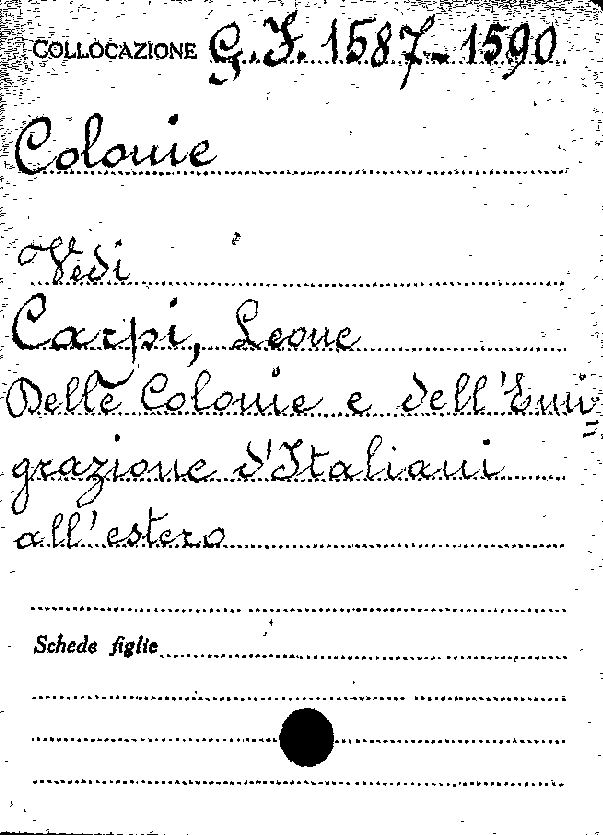 COLLOCAZIONE G. F. 1587-1590
Colonie
Vedi
Carpi, Leone
Delle Colonie e dell'Emi=
grazione d'Italiani
all'estero
Schede figlie